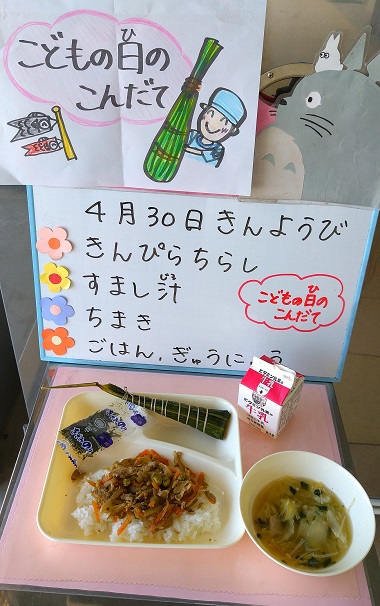 こどもの日のこんだて
ひ
4月30日 きんようび
きんぴらちらし
すまし汁
じる
ちまき
ごはん、ぎゅうにゅう
こどもの日の
ひ
こんだて
牛乳